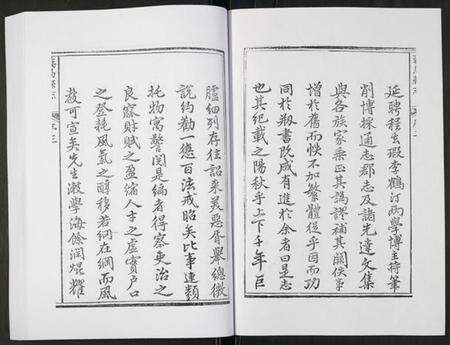 延聘程玉瑕李鶴汀兩學博主持筆
削博採通志郡志及諸先達文集
與各族家乘正其譌謬補其闕佚事
增於舊而快不加繁體從乎因而功
同於剏書既成有進於余者曰是志
也其紀載之陽秋乎上下千年巨
臚細列存往詔來美惡胥舉總微
說約勸一懲百法戒昭矣比事連類
托物寓警閱是編者得察吏治之
良窳財賦之盈縮人士之虛實戶口
之登耗風氣之醇移若網在綱而風
教可宣矣先生澂學海餘潤焜耀